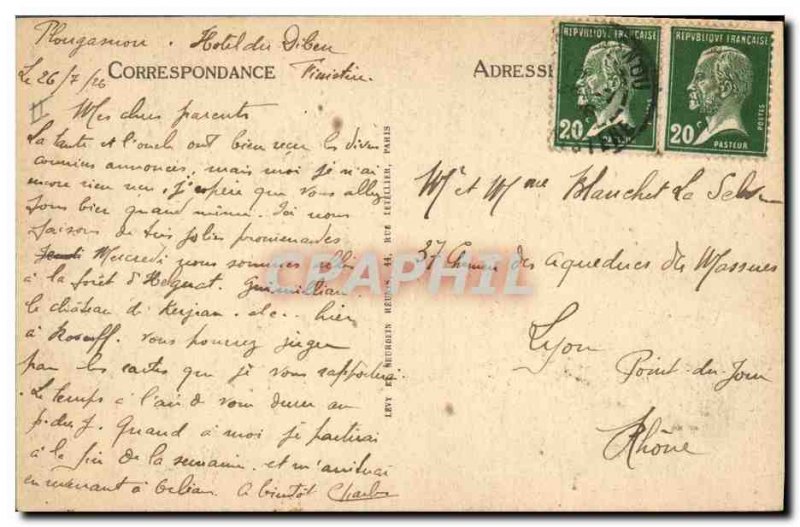 Plougasnou. Hotel du Diben
Le 26/7/26 Finistère
CORRESPONDANCE
II
Mes chers parents
La tante et l'oncle ont bien reçu les divers
annonces, mais moi je n'ai
encore rien reçu, j'espère que vous allez
tous bien quand même. Ici nous
faisons de très jolies promenades.
Jeudi Mercredi nous sommes allés
à la forêt d'Helgoat, Guimilliau
le château d Kerjean. etc.. hier
à Roscoff. vous pourrez juger
par les cartes que je vous rapporterai.
Le temps à l'air de vouloir durer au
Quand à moi je partirai
à la fin de la semaine et m'arrêterai
en à Orléans. a bientôt Charles
LEVY ET NEURDEIN RÉUNIS, 44, RUE LETELLIER, PARIS
ADRESSE
REPVBLIQUE FRANÇAISE
20c
PASTEUR
REPVBLIQUE FRANÇAISE
20c
POSTES
PASTEUR
Mr et Mme Blanchet La Selve
37 Chemin des Aqueducs des Massues
Lyon
Point-du-Jour
Rhône
CPAPHIL